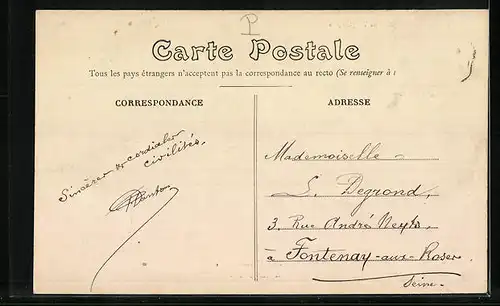 P
Carte Postale
Tous les pays étrangers n'acceptent pas la correspondance au recto (Se renseigner à
CORRESPONDANCE
ADRESSE
Sincères et cordiales
civilités.
Mademoiselle
L. Degrond,
3, Rue André Neyts,
à Fontenay-aux-Roses
Seine.